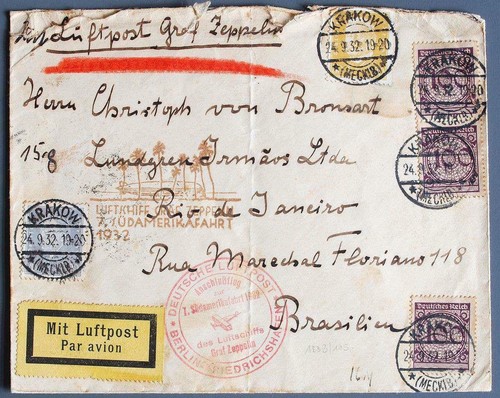 Mit Luftpost Graf Zeppelin
KRAKOW
24.9.32.19-20
(MECKLB)
Deutsches Reich
KRAKOW
(MECKLB)
Herrn Christoph von Bronsart
158 Lundgren Irmãos Ltda
Deutsches Reich
100
KRAKOW
(MECKLB)
LUFTSCHIFF GRAF ZEPPELIN
7. SÜDAMERIKAFAHRT
1932
Rio de Janeiro
KRAKOW
24.9.32.19-20
(MECKLB)
Rua Marechal Floriano 118
DEUTSCHE LUFTPOST
Anschlußflug
zur
7. Südamerikafahrt 1932
des Luftschiffs
Graf Zeppelin
BERLIN-FRIEDRICHSHAFEN
Brasilien
Deutsches Reich
100
KRAKOW
24.9.32.19-20
(MECKLB)
Mit Luftpost
Par avion